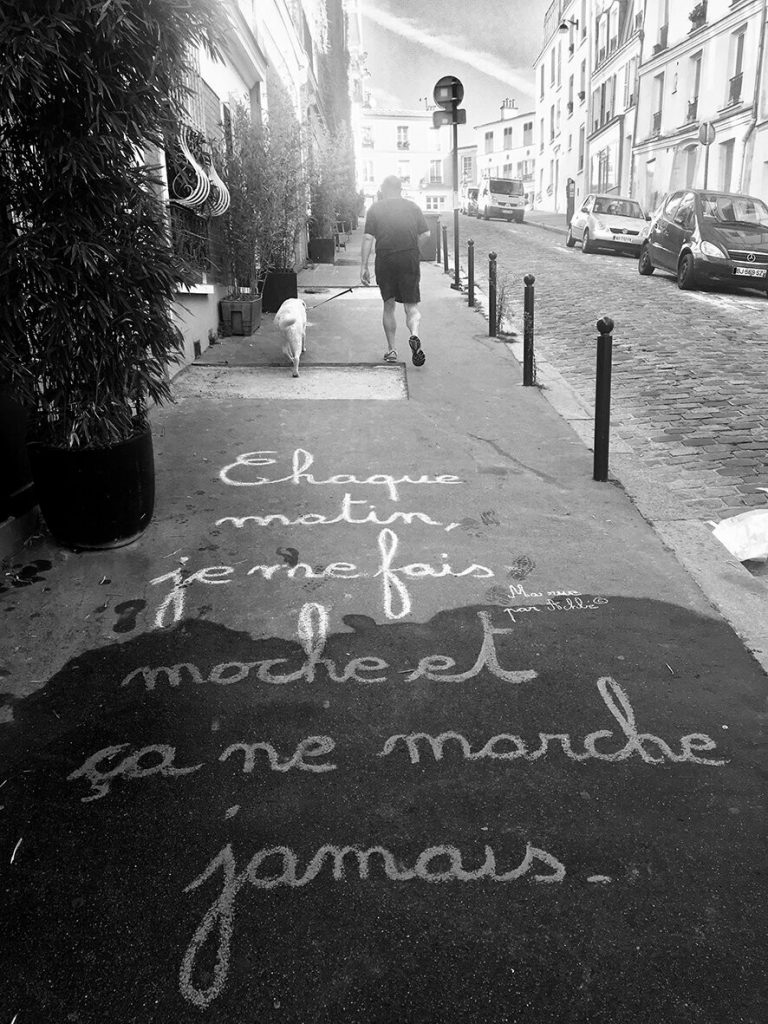 Chaque
matin,
je me fais
Ma rue
par Achbé©
moche et
ça ne marche
jamais.